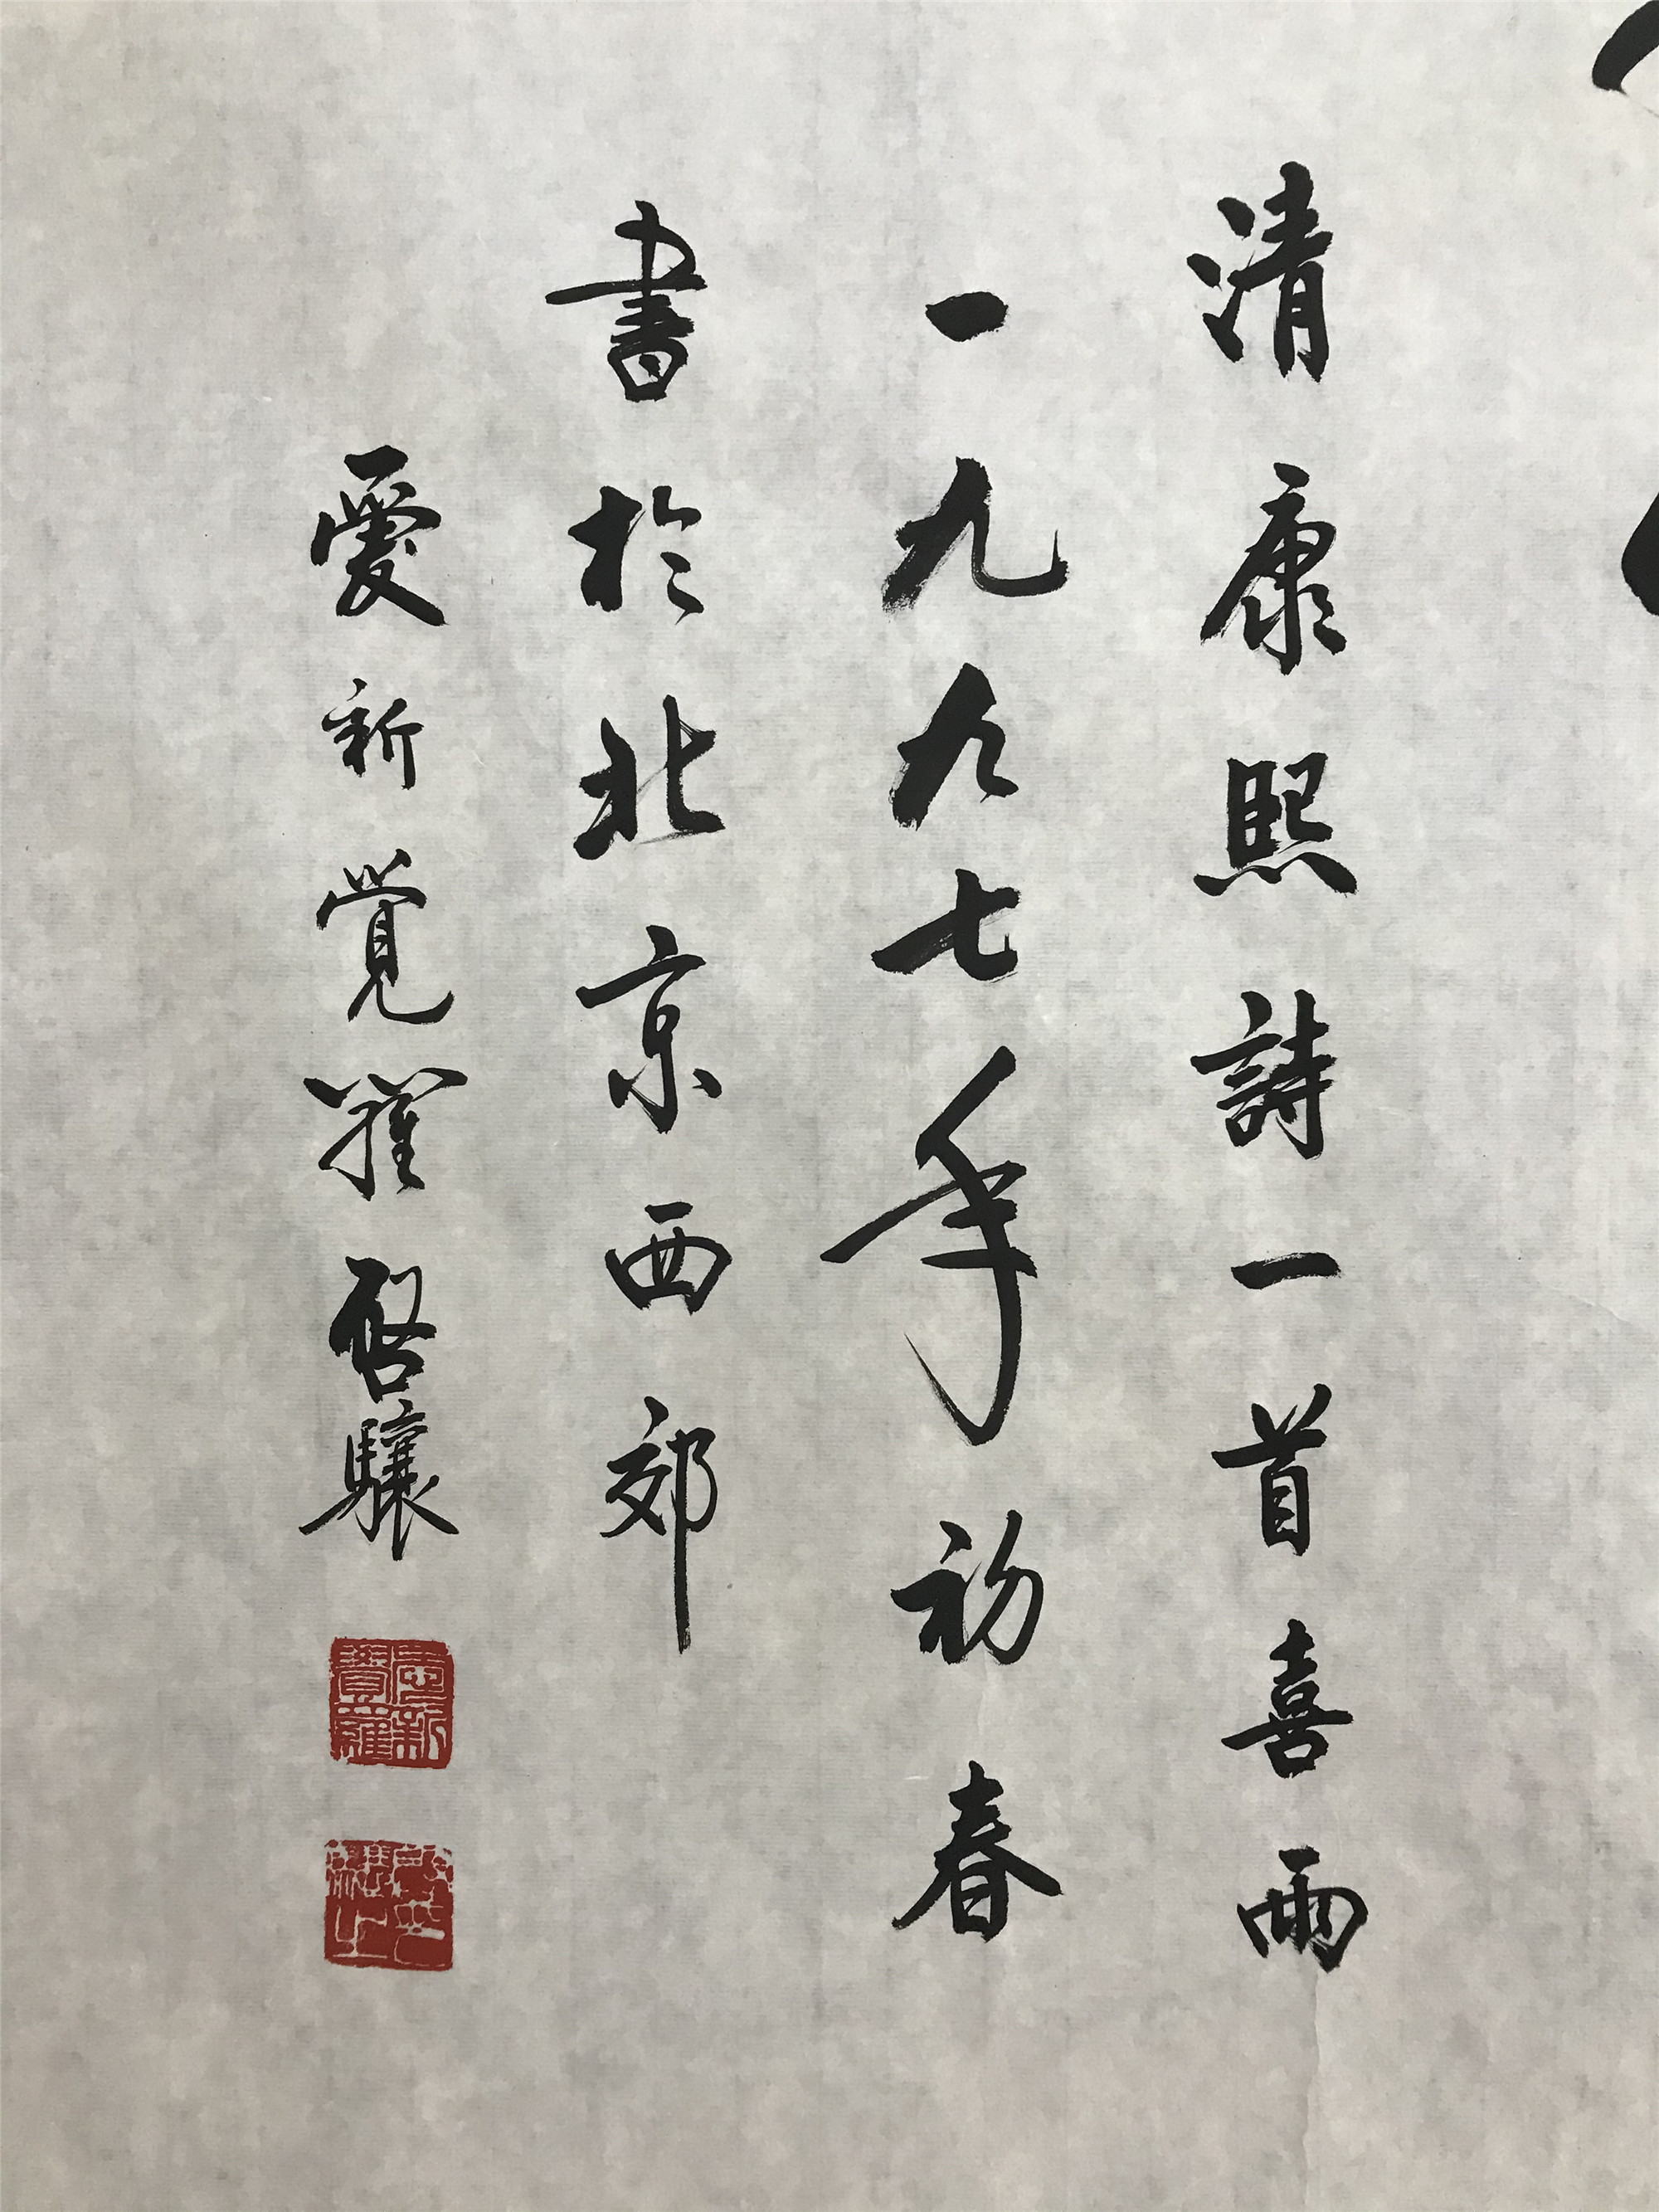 清康熙詩一首喜雨
一九九七年初春
書於北京西郊
愛新覺羅啓驤
愛新覺羅